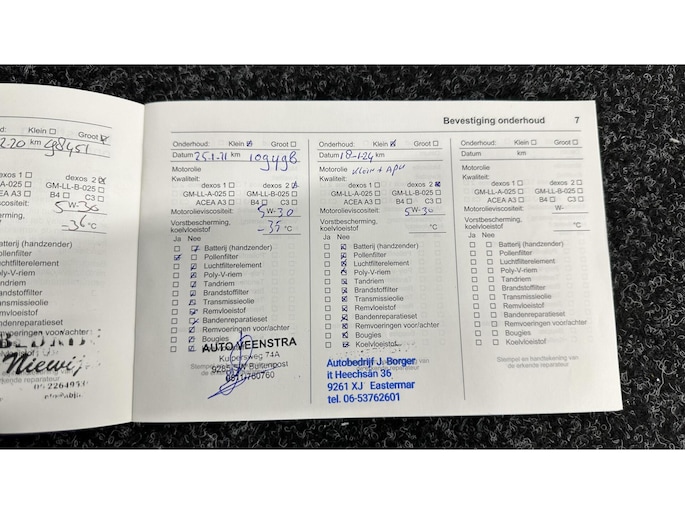 Bevestiging onderhoud 7
Klein Groot
km 98451
dexos 1 dexos 2
GM-LL-B-025
ACEA A3 B4 C3
5 W-30
-36 °C
Batterij (handzender)
Pollenfilter
Luchtfilterelement
Poly-V-riem
Tandriem
Brandstoffilter
Transmissieolie
Remvloeistof
Bandenreparatieset
Niewij
Onderhoud: Klein Groot
Datum 25-1-21 km 109498
Motorolie
Kwaliteit:
dexos 1 dexos 2
GM-LL-A-025 GM-LL-B-025
ACEA A3 B4 C3
Motorolieviscositeit: 5 W-30
Vorstbescherming,
koelvloeistof -35 °C
Ja Nee
Batterij (handzender)
Pollenfilter
Luchtfilterelement
Poly-V-riem
Tandriem
Brandstoffilter
Transmissieolie
Remvloeistof
Bandenreparatieset
Remvoeringen voor/achter
Bougies
AUTO VEENSTRA
Kuipersweg 74A
Buitenpost
Onderhoud: Klein Groot
Datum 18-1-24 km
Motorolie Klein + APK
Kwaliteit:
dexos 1 dexos 2
GM-LL-A-025 GM-LL-B-025
ACEA A3 B4 C3
Motorolieviscositeit: 5 W-30
Vorstbescherming,
koelvloeistof °C
Ja Nee
Batterij (handzender)
Pollenfilter
Luchtfilterelement
Poly-V-riem
Tandriem
Brandstoffilter
Transmissieolie
Remvloeistof
Bandenreparatieset
Remvoeringen voor/achter
Bougies
Koelvloeistof
Autobedrijf J. Borger
it Heechsân 36
9261 XJ Eastermar
tel. 06-53762601
Onderhoud: Klein Groot
Datum km
Motorolie
Kwaliteit:
dexos 1 dexos 2
GM-LL-A-025 GM-LL-B-025
ACEA A3 B4 C3
Motorolieviscositeit: W-
Vorstbescherming,
koelvloeistof °C
Ja Nee
Batterij (handzender)
Pollenfilter
Luchtfilterelement
Poly-V-riem
Tandriem
Brandstoffilter
Transmissieolie
Remvloeistof
Bandenreparatieset
Remvoeringen voor/achter
Bougies
Koelvloeistof
Stempel en handtekening van
de erkende reparateur